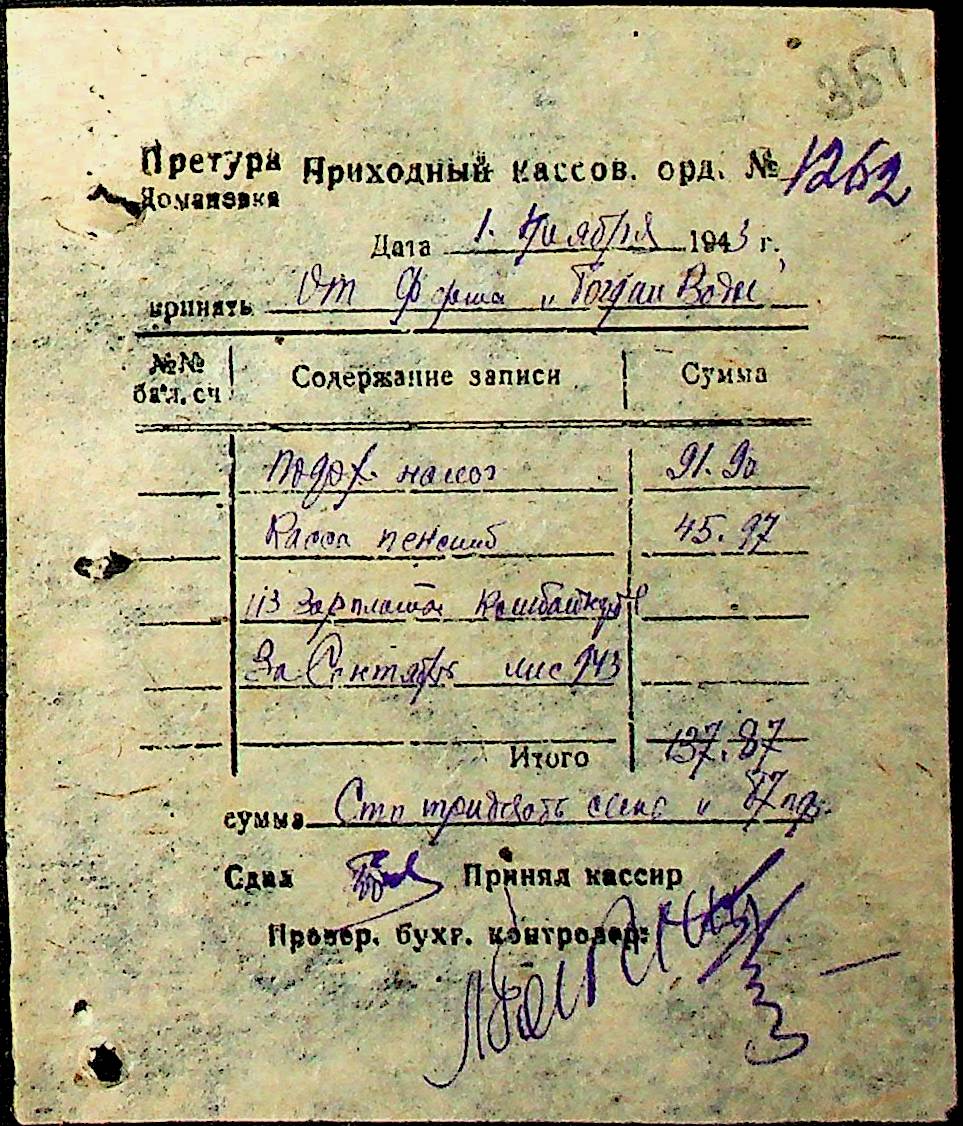 351
Претура Приходный кассов. орд. № 1262
Домановка
Дата 1. Ноября 1943 г.
принять От Ферма „Богдан Воды"
№№ бал. сч Содержание записи Сумма
подох. налог 91.90
Касса пенсий 45.97
из зарплаты Комбайнеров
За Сентябрь мис 943
Итого 137.87
сумма Сто тридцать семь и 87 пф.
Сдал Принял кассир
Провер. бухг. контролер: